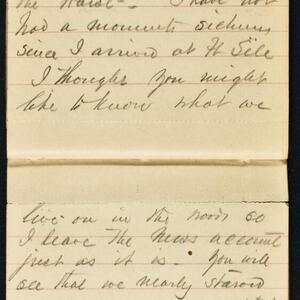 the Hawse - I have not
had a moments sickness
since I arrived at Ft Sill
I thought you might
like to know what we
live on in the woods so
I leave the mess account
just as it is - you will
see that we nearly starved